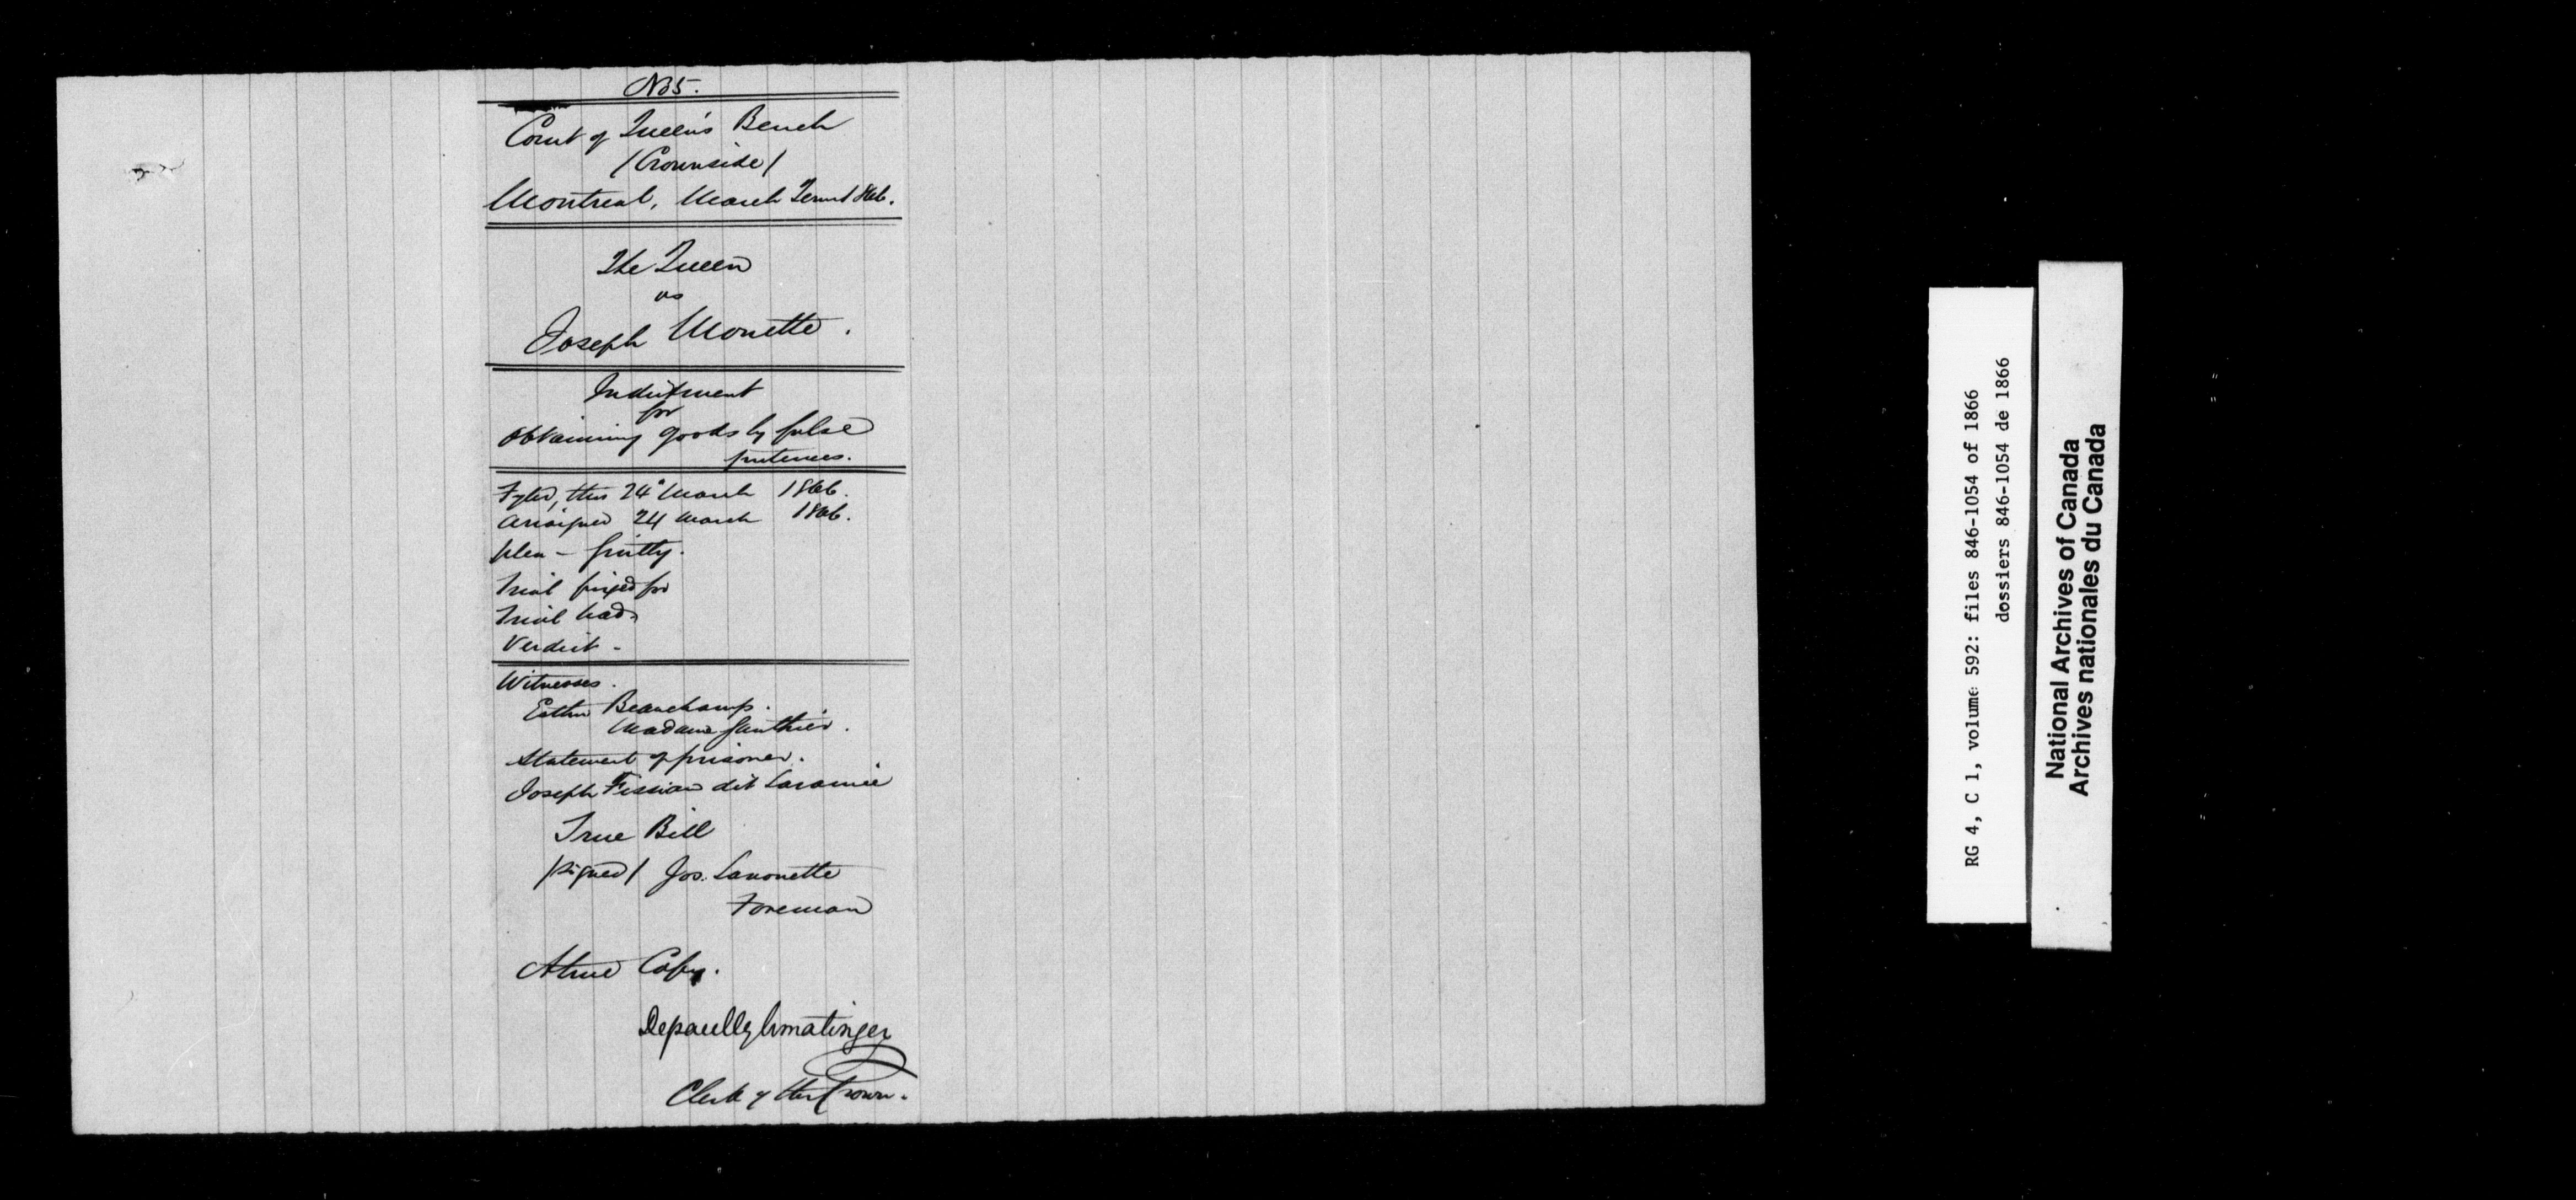 No 5.
Court of Queen's Bench
/Crownside/
Montreal, March Term 1866.
The Queen
vs
Joseph Monette.
Indictment
for
obtaining goods by false
pretences.
Fyled, this 24° March 1866.
Arraigned 24 March 1866.
plea - guilty.
Trial fixed for
Trial had
Verdict -
Witnesses.
Esther Beauchamp.
Madame Gauthier.
Statement of prisoner.
Joseph Tessian dit Laramée
True Bill
/Signed/ Jos. Lanouette
Foreman
A true Copy.
Clerk of the Crown.
RG 4, C 1, volume 592: files 846-1054 of 1866
dossiers 846-1054 de 1866
National Archives of Canada
Archives nationales du Canada